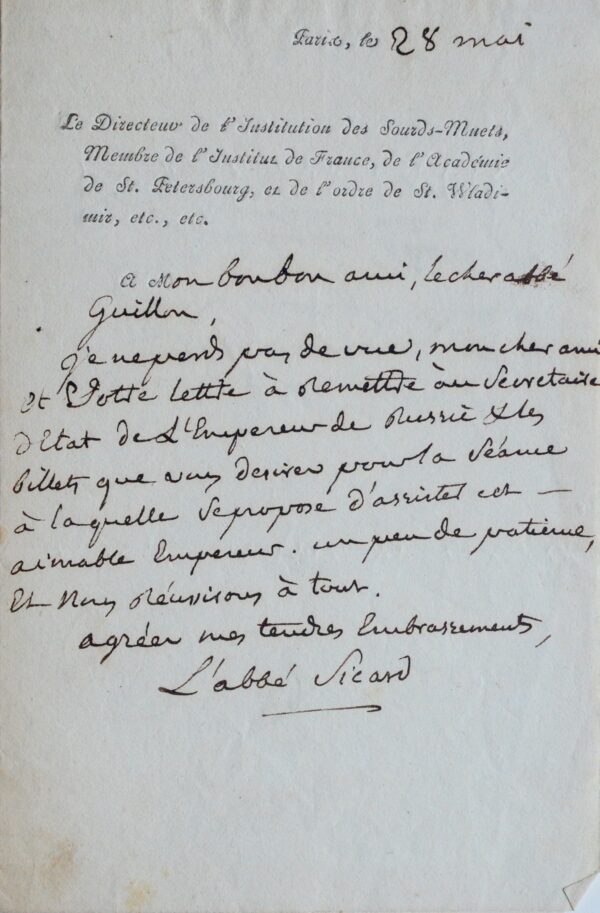 Paris, le 28 mai
Le Directeur de l'Institution des Sourds-Muets,
Membre de l'Institut de France, de l'Académie
de St. Petersbourg, et de l'ordre de St. Wladi-
mir, etc., etc.
A Mon bon bon ami, le cher abbé
Guillon,
je ne perds pas de vue, mon cher ami
et Votre lettre à Remettre au Secretaire
d'Etat de L'Empereur de Russie & les
billets que vous desirez pour la Séance
à laquelle se propose d'assister cet —
aimable Empereur. un peu de patience,
Et Nous Réussirons à tout.
agréez mes tendres Embrassements,
L'abbé Sicard